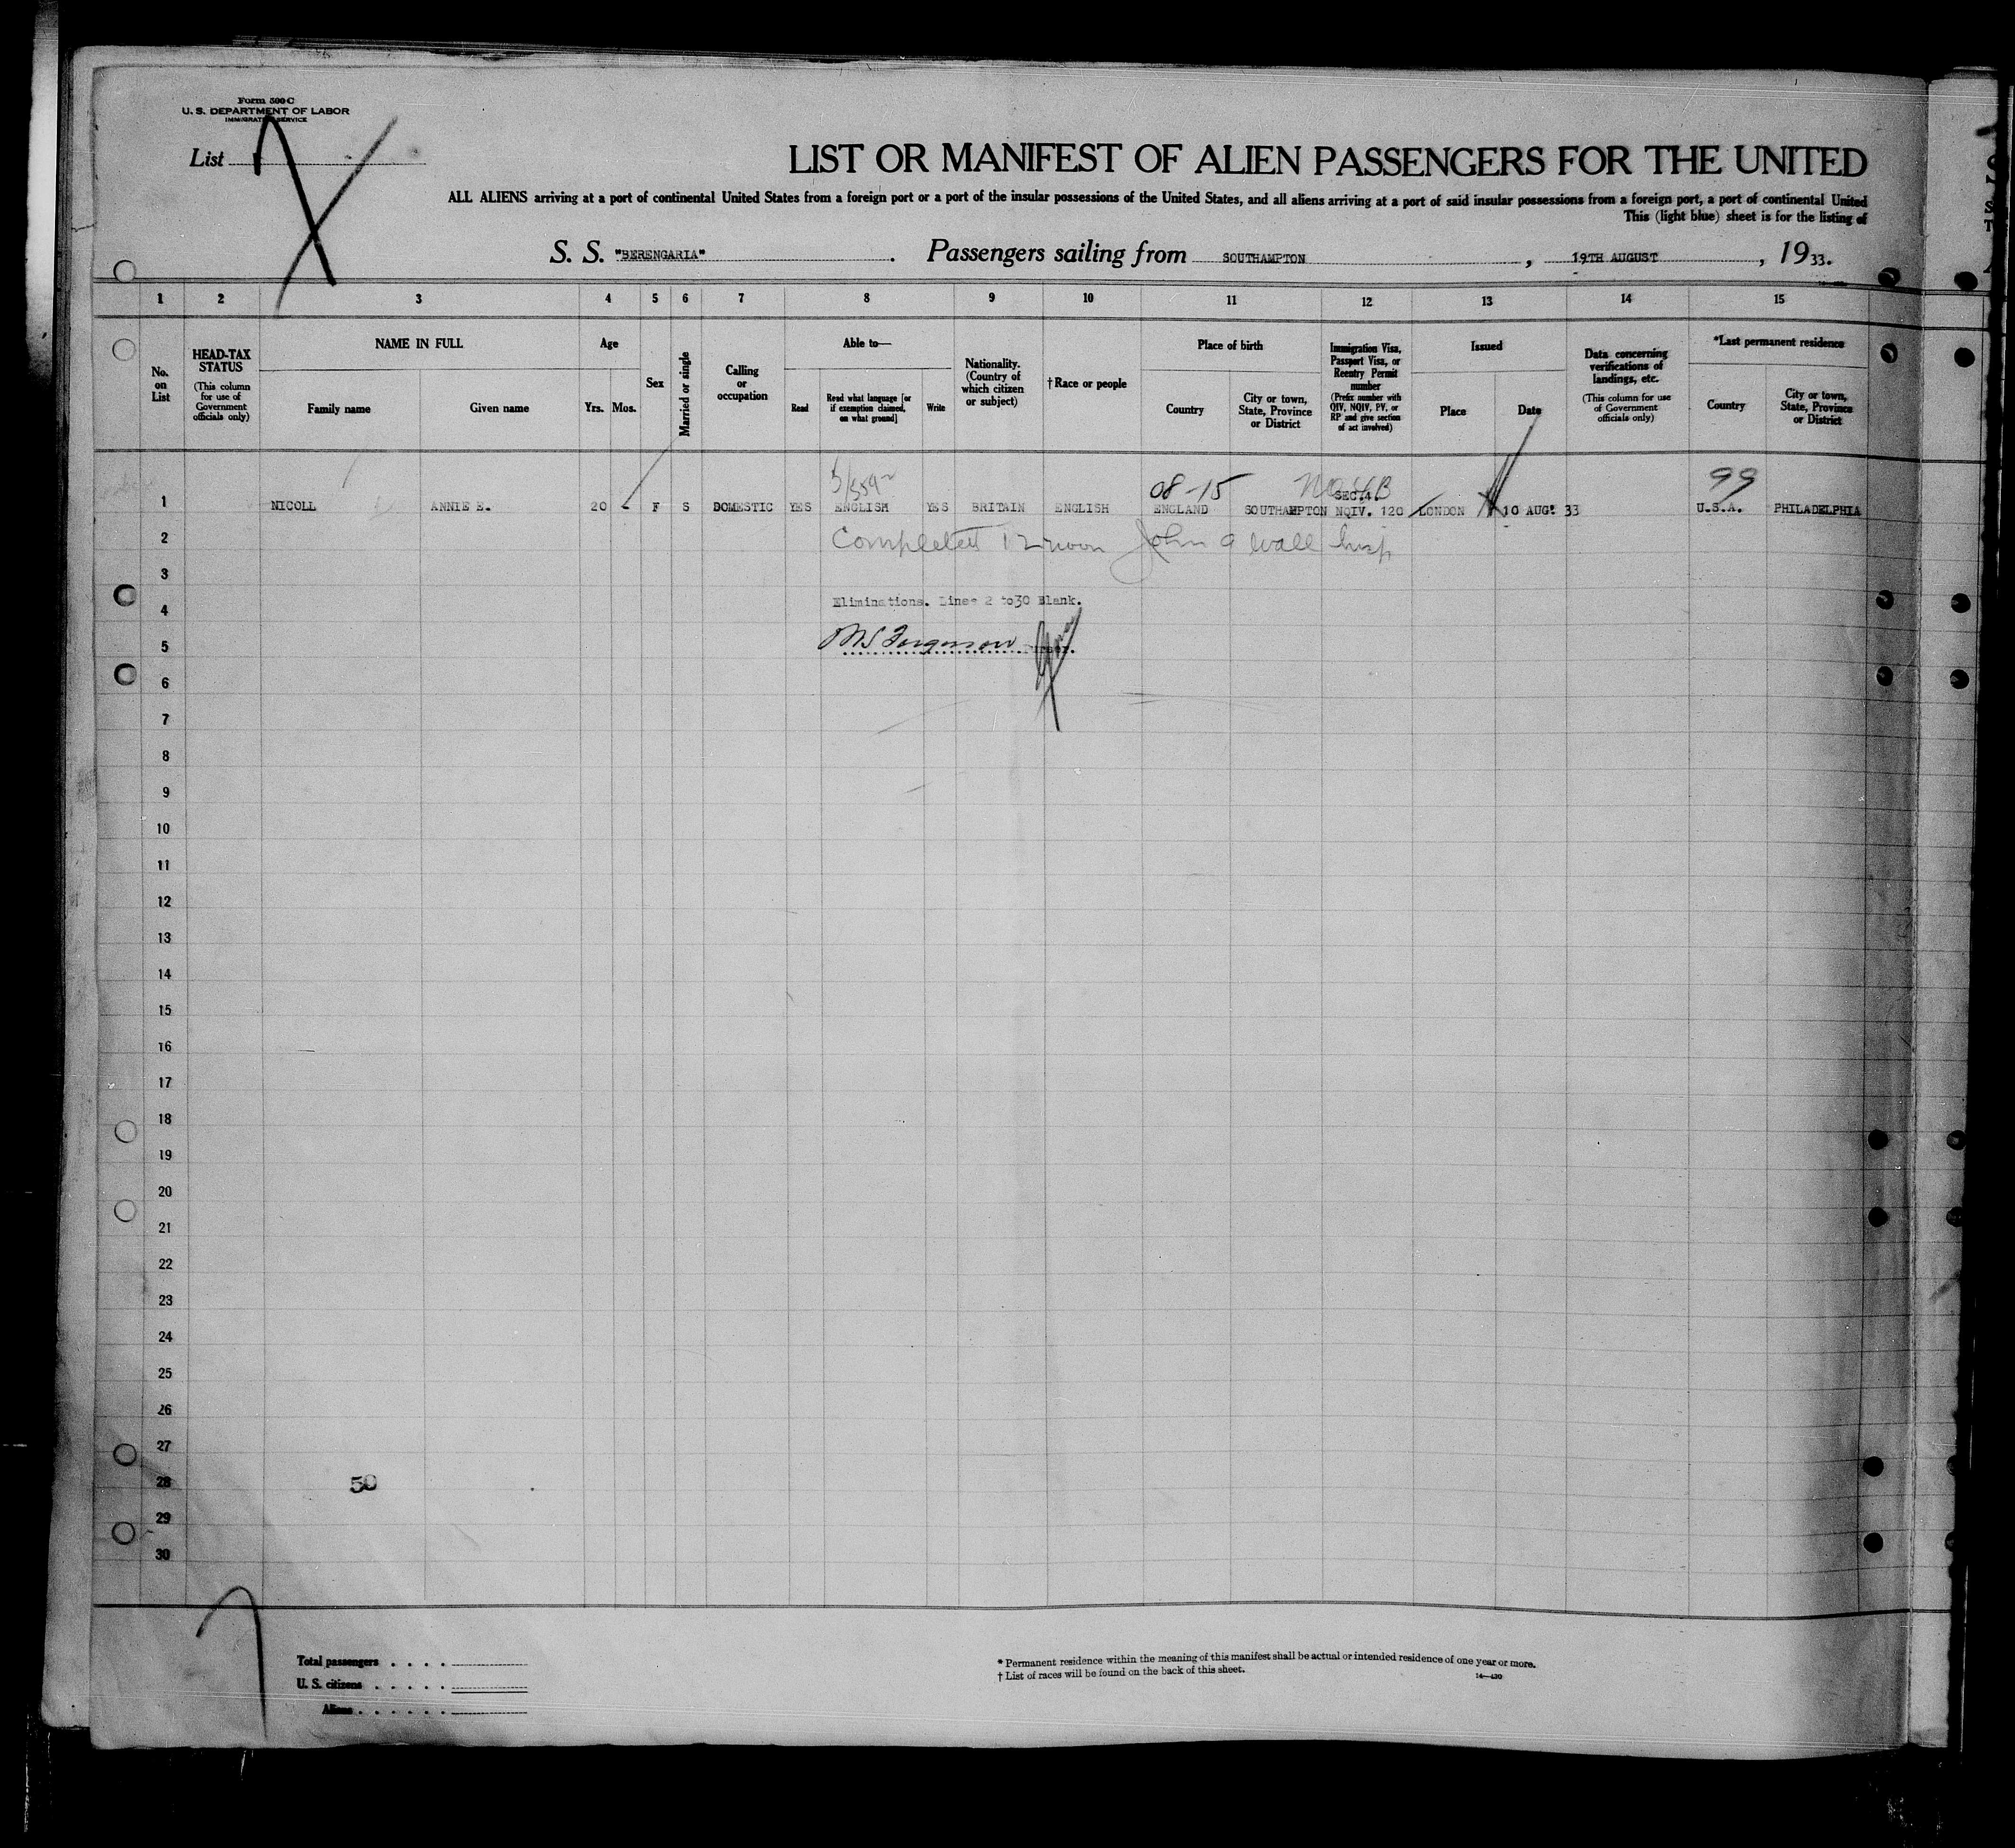 Form 500 C
U. S. DEPARTMENT OF LABOR
IMMIGRATION SERVICE
List
LIST OR MANIFEST OF ALIEN PASSENGERS FOR THE UNITED
ALL ALIENS arriving at a port of continental United States from a foreign port or a port of the insular possessions of the United States, and all aliens arriving at a port of said insular possessions from a foreign port, a port of continental United
This (light blue) sheet is for the listing of
S. S. "BERENGARIA". Passengers sailing from SOUTHAMPTON, 19TH AUGUST, 1933.
1 2 3 4 5 6 7 8 9 10 11 12 13 14 15
No. on List
HEAD-TAX STATUS
(This column for use of Government officials only)
NAME IN FULL
Family name Given name
Age
Yrs. Mos.
Sex
Married or single
Calling or occupation
Able to—
Read
Read what language [or if exemption claimed, on what ground]
Write
Nationality. (Country of which citizen or subject)
† Race or people
Place of birth
Country
City or town, State, Province or District
Immigration Visa, Passport Visa, or Reentry Permit number
(Prefix number with QIV, NQIV, PV, or RP and give section of act involved)
Issued
Place Date
Data concerning verifications of landings, etc.
(This column for use of Government officials only)
*Last permanent residence
Country
City or town, State, Province or District
08-15 99
SEC.4.
1 NICOLL ANNIE E. 20 - F S DOMESTIC YES ENGLISH YES BRITAIN ENGLISH ENGLAND SOUTHAMPTON NQIV. 120 LONDON 10 AUG: 33 U.S.A. PHILADELPHIA
2 Completed 12 noon John A Wall Insp
3
4 Eliminations. Lines 2 to 30 Blank.
5 Ferguson Purser.
6
7
8
9
10
11
12
13
14
15
16
17
18
19
20
21
22
23
24
25
26
27
28 50
29
30
Total passengers . . . .
U. S. citizens . . . . .
Aliens . . . . . .
* Permanent residence within the meaning of this manifest shall be actual or intended residence of one year or more.
† List of races will be found on the back of this sheet.
14—430